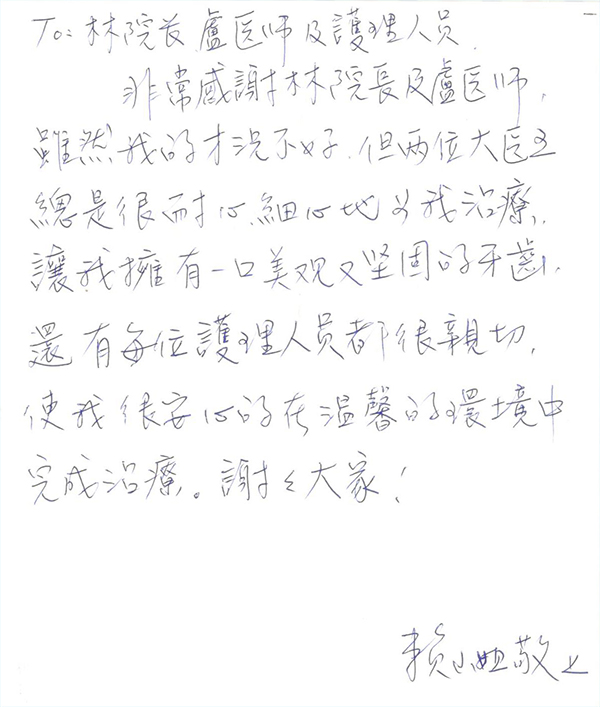 To: 林院长 盧医师及護理人員.
非常感謝林院長及盧医师,
雖然我的才況不好,但两位大医王
總是很耐心、細心地为我治療,
讓我擁有一口美观又坚固的牙齒,
還有每位護理人员都很親切,
使我很安心的在温馨的環境中
完成治療。謝々大家!
賴小姐敬上